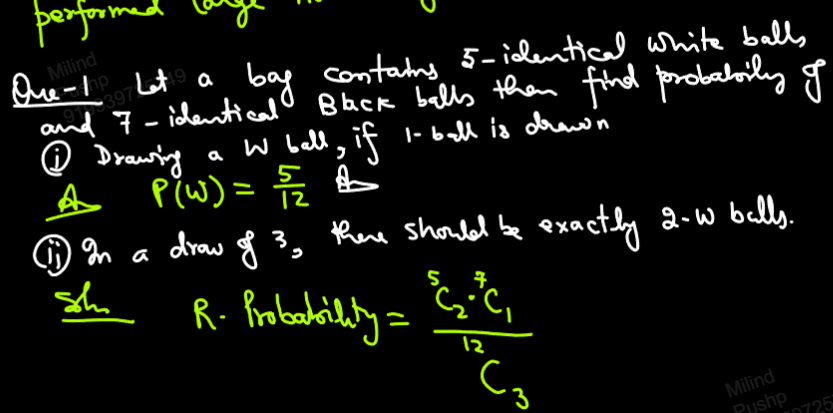 performed large
Que-1 Let a bag contains 5-identical white balls
and 7-identical Black balls then find probability of
(i) Drawing a W ball, if 1-ball is drawn
A P(W) = 5/12 A
(ii) In a draw of 3, there should be exactly 2-W balls.
Soln R. Probability = ⁵C₂·⁷C₁ / ¹²C₃
Milind
Pushp
Milind
Pushp